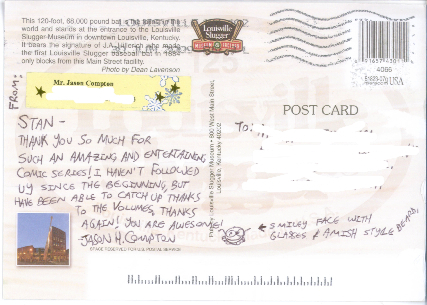 This 120-foot, 68,000 pound bat is the
world and stands at the entrance to the Louisville
Slugger Museum in downtown Louisville, Kentucky.
It bears the signature of J.A. Hillerich who made
the first Louisville Slugger baseball bat in 1884
only blocks from this Main Street facility.
Photo by Dean Lavenson
Louisville
Slugger
4066
USA
FROM:
Mr. Jason Compton
POST CARD
TO:
STAN -
THANK YOU SO MUCH FOR
SUCH AN AMAZING AND ENTERTAINING
COMIC SERIES! I HAVEN'T FOLLOWED
UY SINCE THE BEGINNING, BUT
HAVE BEEN ABLE TO CATCH UP THANKS
TO THE VOLUMES, THANKS
AGAIN! YOU ARE AWESOME!
JASON H. COMPTON
← SMILEY FACE WITH
GLASSES & AMISH STYLE BEARD,
Louisville Slugger Museum • 800 West Main Street,
Louisville, Kentucky 40202
SPACE RESERVED FOR U.S. POSTAL SERVICE